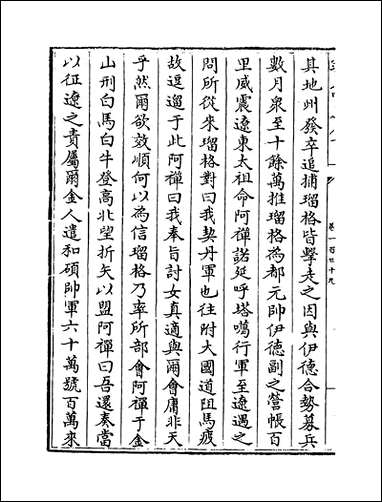 其地州發卒追捕瑠格皆擊走之因與伊德合勢募兵
數月衆至十餘萬推瑠格為都元帥伊德副之營帳百
里威震遼東太祖命阿禪諾延呼塔噶行軍至遼遇之
問所從來瑠格對曰我契丹軍也往附大國道阻馬疲
故逗遛于此阿禪曰我奉旨討女真適與爾會庸非天
乎然爾欲效順何以為信瑠格乃率所部會阿禪于金
山刑白馬白牛登高北望折矢以盟阿禪曰吾還奏當
以征遼之責屬爾金人遣和碩帥軍六十萬號百萬來